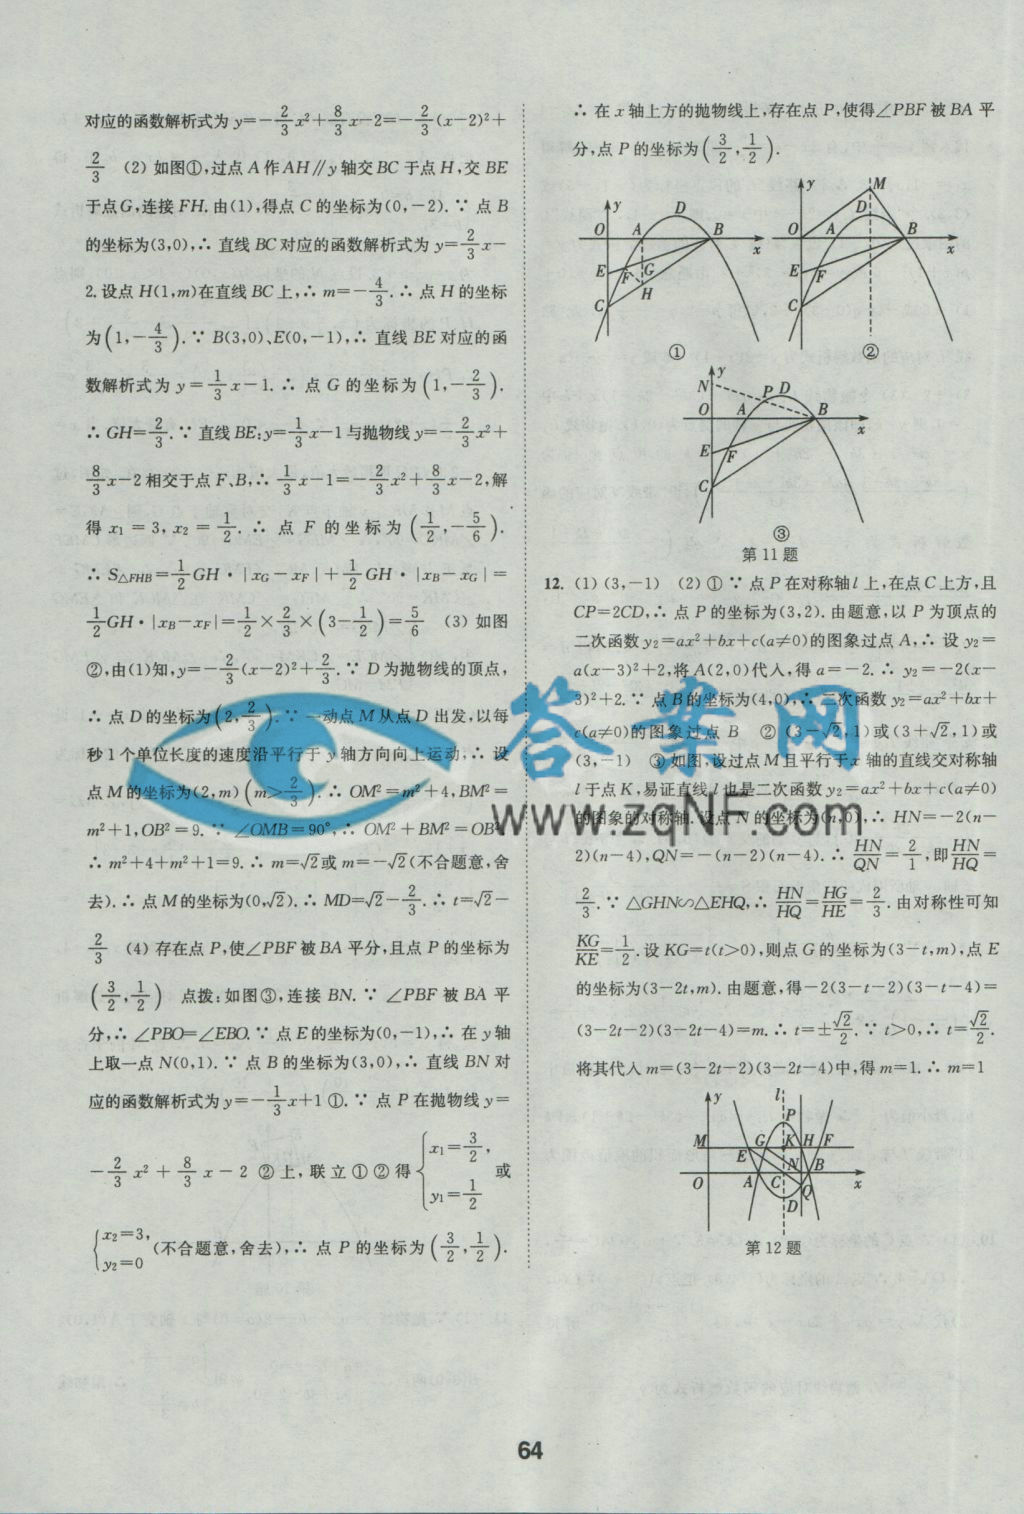 对应的函数解析式为 y=-2/3x²+8/3x-2=-2/3(x-2)²+
2/3 (2) 如图①,过点 A 作 AH∥y 轴交 BC 于点 H,交 BE
于点 G,连接 FH. 由(1),得点 C 的坐标为(0,-2). ∵ 点 B
的坐标为(3,0),∴ 直线 BC 对应的函数解析式为 y=2/3x-
2. 设点 H(1,m)在直线 BC 上,∴ m=-4/3. ∴ 点 H 的坐标
为(1,-4/3). ∵ B(3,0)、E(0,-1),∴ 直线 BE 对应的函
数解析式为 y=1/3x-1. ∴ 点 G 的坐标为(1,-2/3).
∴ GH=2/3. ∵ 直线 BE:y=1/3x-1 与抛物线 y=-2/3x²+
8/3x-2 相交于点 F、B,∴ 1/3x-1=-2/3x²+8/3x-2,解
得 x₁=3,x₂=1/2. ∴ 点 F 的坐标为(1/2,-5/6).
∴ S△FHB=1/2GH·|xG-xF|+1/2GH·|xB-xG|=
1/2GH·|xB-xF|=1/2×2/3×(3-1/2)=5/6 (3) 如图
②,由(1)知,y=-2/3(x-2)²+2/3. ∵ D 为抛物线的顶点,
∴ 点 D 的坐标为(2,2/3). ∵ 一动点 M 从点 D 出发,以每
秒 1 个单位长度的速度沿平行于 y 轴方向向上运动,∴ 设
点 M 的坐标为(2,m)(m>2/3). ∴ OM²=m²+4,BM²=
m²+1,OB²=9. ∵ ∠OMB=90°,∴ OM²+BM²=OB².
∴ m²+4+m²+1=9. ∴ m=√2或 m=-√2(不合题意,舍
去). ∴ 点 M 的坐标为(0,√2). ∴ MD=√2-2/3. ∴ t=√2-
2/3 (4) 存在点 P,使∠PBF 被 BA 平分,且点 P 的坐标为
(3/2,1/2) 点拨:如图③,连接 BN. ∵ ∠PBF 被 BA 平
分,∴ ∠PBO=∠EBO. ∵ 点 E 的坐标为(0,-1),∴ 在 y 轴
上取一点 N(0,1). ∵ 点 B 的坐标为(3,0),∴ 直线 BN 对
应的函数解析式为 y=-1/3x+1 ①. ∵ 点 P 在抛物线 y=
-2/3x²+8/3x-2 ②上,联立①②得{x₁=3/2, y₁=1/2 或
{x₂=3, y₂=0 (不合题意,舍去),∴ 点 P 的坐标为(3/2,1/2).
∴ 在 x 轴上方的抛物线上,存在点 P,使得∠PBF 被 BA 平
分,点 P 的坐标为(3/2,1/2).
y D O A B x E F G H C
①
y M D O A B x E F C
②
y N P D O A B x E F C
③
第 11 题
12. (1) (3,-1) (2) ① ∵ 点 P 在对称轴 l 上,在点 C 上方,且
CP=2CD,∴ 点 P 的坐标为(3,2). 由题意,以 P 为顶点的
二次函数 y₂=ax²+bx+c(a≠0)的图象过点 A,∴ 设 y₂=
a(x-3)²+2,将 A(2,0)代入,得 a=-2. ∴ y₂=-2(x-
3)²+2. ∵ 点 B 的坐标为(4,0),∴ 二次函数 y₂=ax²+bx+
c(a≠0)的图象过点 B ② (3-√2,1)或(3+√2,1)或
(3,-1) ③ 如图,设过点 M 且平行于 x 轴的直线交对称轴
l 于点 K,易证直线 l 也是二次函数 y₂=ax²+bx+c(a≠0)
的图象的对称轴. 设点 N 的坐标为(n,0),∴ HN=-2(n-
2)(n-4),QN=-(n-2)(n-4). ∴ HN/QN=2/1,即HN/HQ=
2/3. ∵ △GHN∽△EHQ,∴ HN/HQ=HG/HE=2/3. 由对称性可知
KG/KE=1/2. 设 KG=t(t>0),则点 G 的坐标为(3-t,m),点 E
的坐标为(3-2t,m). 由题意,得-2(3-t-2)(3-t-4)=
(3-2t-2)(3-2t-4)=m. ∴ t=±√2/2. ∵ t>0,∴ t=√2/2.
将其代入 m=(3-2t-2)(3-2t-4)中,得 m=1. ∴ m=1
y l P M E G K H F N B O A C x Q D
第 12 题
答案网
www.zqNF.com
64